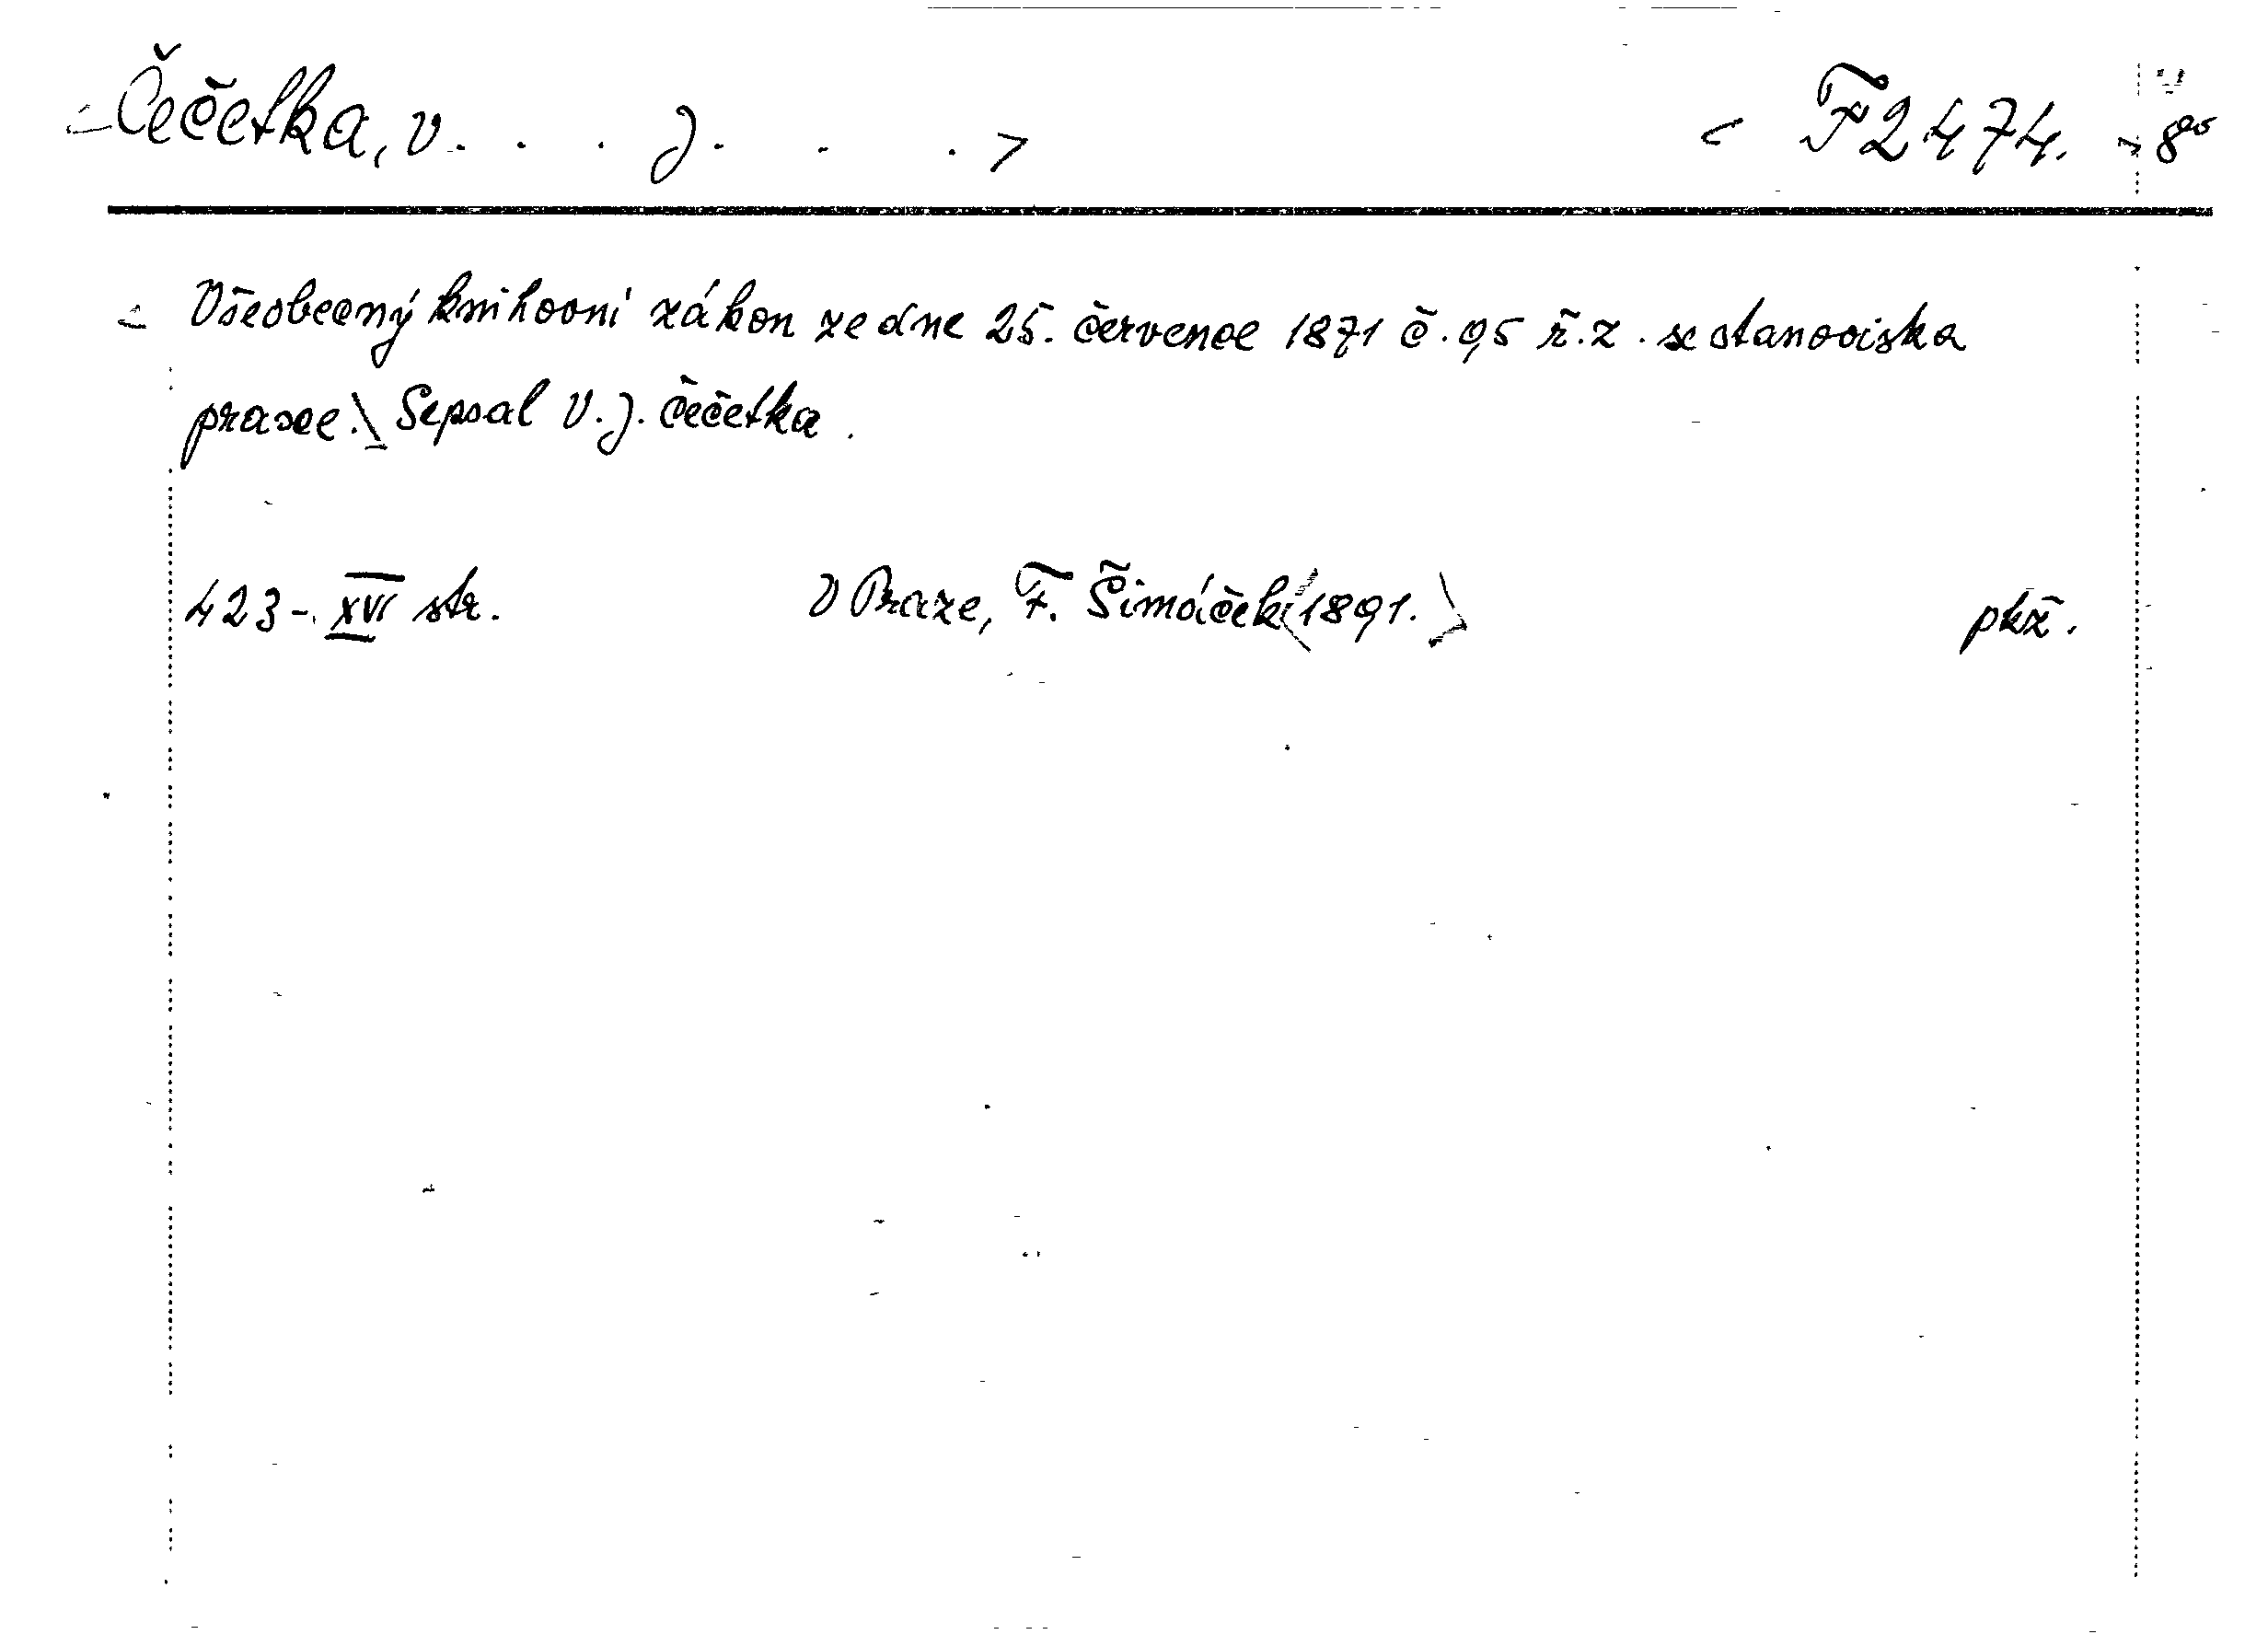 Čečetka, V. . . . J. . . > < F 2474. > 8°
< Všeobecný knihovní zákon ze dne 25. července 1871 č. 95 ř. z. se stanoviska
praxe. > Sepsal V. J. Čečetka.
423 - XVI str. V Praze, F. Šimáček < 1891. > pkž.